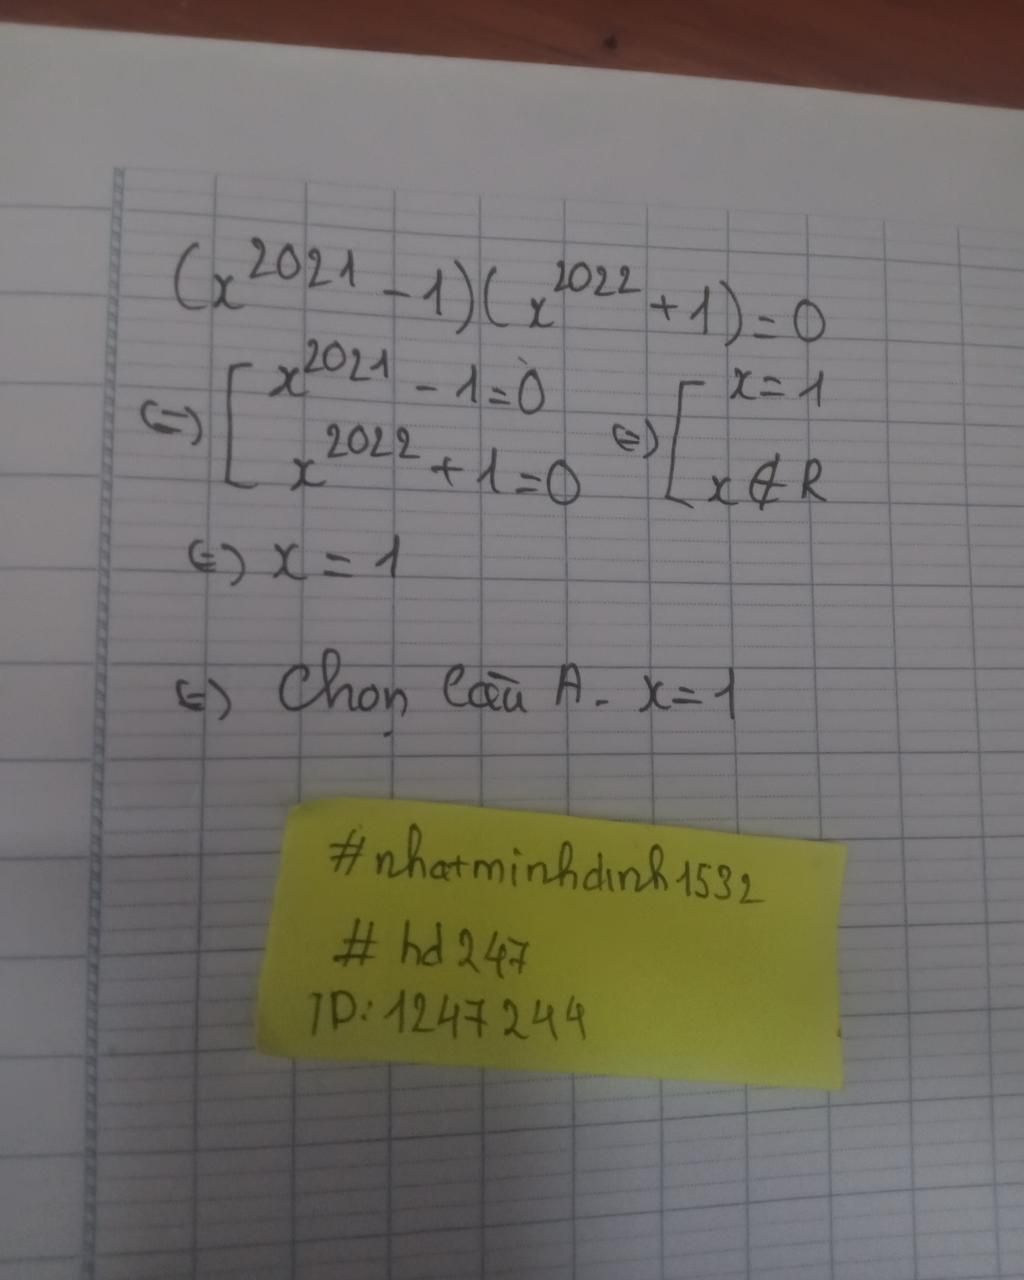 (x^2021 - 1)(x^2022 + 1) = 0
(=) [ x^2021 - 1 = 0 (=) [ x = 1
x^2022 + 1 = 0 x ∉ R
(=) x = 1
(=) Chọn Câu A. x = 1
#nhatminhdinh1532
# hd247
ID: 1247244